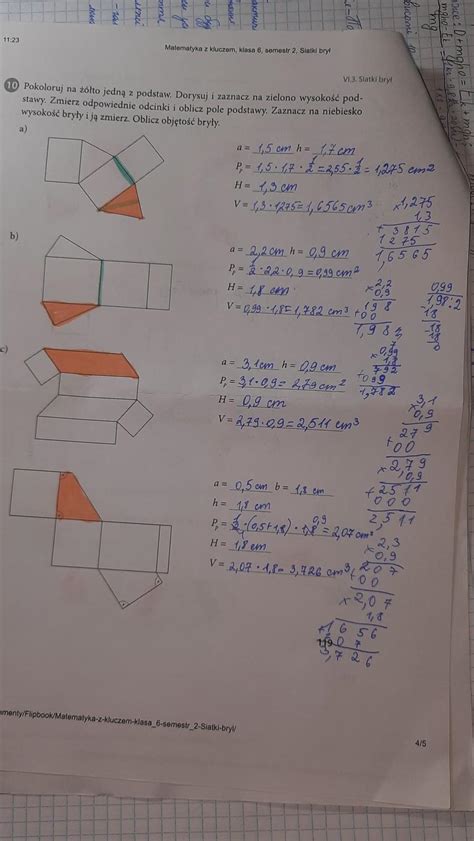 11:23
Matematyka z kluczem, klasa 6, semestr 2, Siatki brył
VI.3. Siatki brył
10 Pokoloruj na żółto jedną z podstaw. Dorysuj i zaznacz na zielono wysokość pod-
stawy. Zmierz odpowiednie odcinki i oblicz pole podstawy. Zaznacz na niebiesko
wysokość bryły i ją zmierz. Oblicz objętość bryły.
a)
a = 1,5 cm h = 1,7 cm
Pp = 1,5 · 1,7 · 1/2 = 2,55 · 1/2 = 1,275 cm2
H = 1,3 cm
V = 1,3 · 1,275 = 1,6565 cm3
x 1,275
1,3
+ 3815
1275
1,6565
b)
a = 2,2 cm h = 0,9 cm
Pp = 1/2 · 2,2 · 0,9 = 0,99 cm2
H = 1,8 cm
V = 0,99 · 1,8 = 1,782 cm3
x 2,2
0,9
198
+ 00
1,98
0,99
1,98:2
-18
18
-18
0
x 0,99
1,8
792
+ 099
1,782
c)
a = 3,1 cm h = 0,9 cm
Pp = 3,1 · 0,9 = 2,79 cm2
H = 0,9 cm
V = 2,79 · 0,9 = 2,511 cm3
x 3,1
0,9
279
+ 00
x 2,79
0,9
+ 2511
000
2,511
a = 0,5 cm b = 1,8 cm
h = 1,8 cm
Pp = 1/2 · (0,5+1,8) · 1,8 0,9 = 2,07 cm2
H = 1,8 cm
V = 2,07 · 1,8 = 3,726 cm3
x 2,3
0,9
207
+ 00
x 2,07
1,8
+ 1656
207
3,726
119
ementy/Flipbook/Matematyka-z-kluczem-klasa_6-semestr_2-Siatki-bryl/
4/5